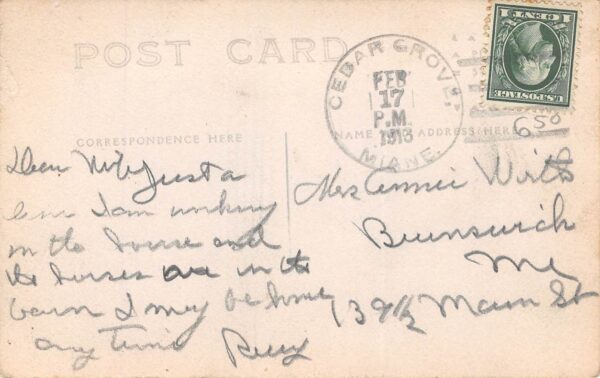 POST CARD
CEDAR GROVE,
FEB
17
P.M.
1913
MAINE.
1 CENT 1
U.S. POSTAGE
650
CORRESPONDENCE HERE
NAME AND ADDRESS HERE
Dear Just a
line I am working
in the house and
the horses are in the
barn I may be home
any time
Mrs Annie
Brunswick
Me
39½ Main St